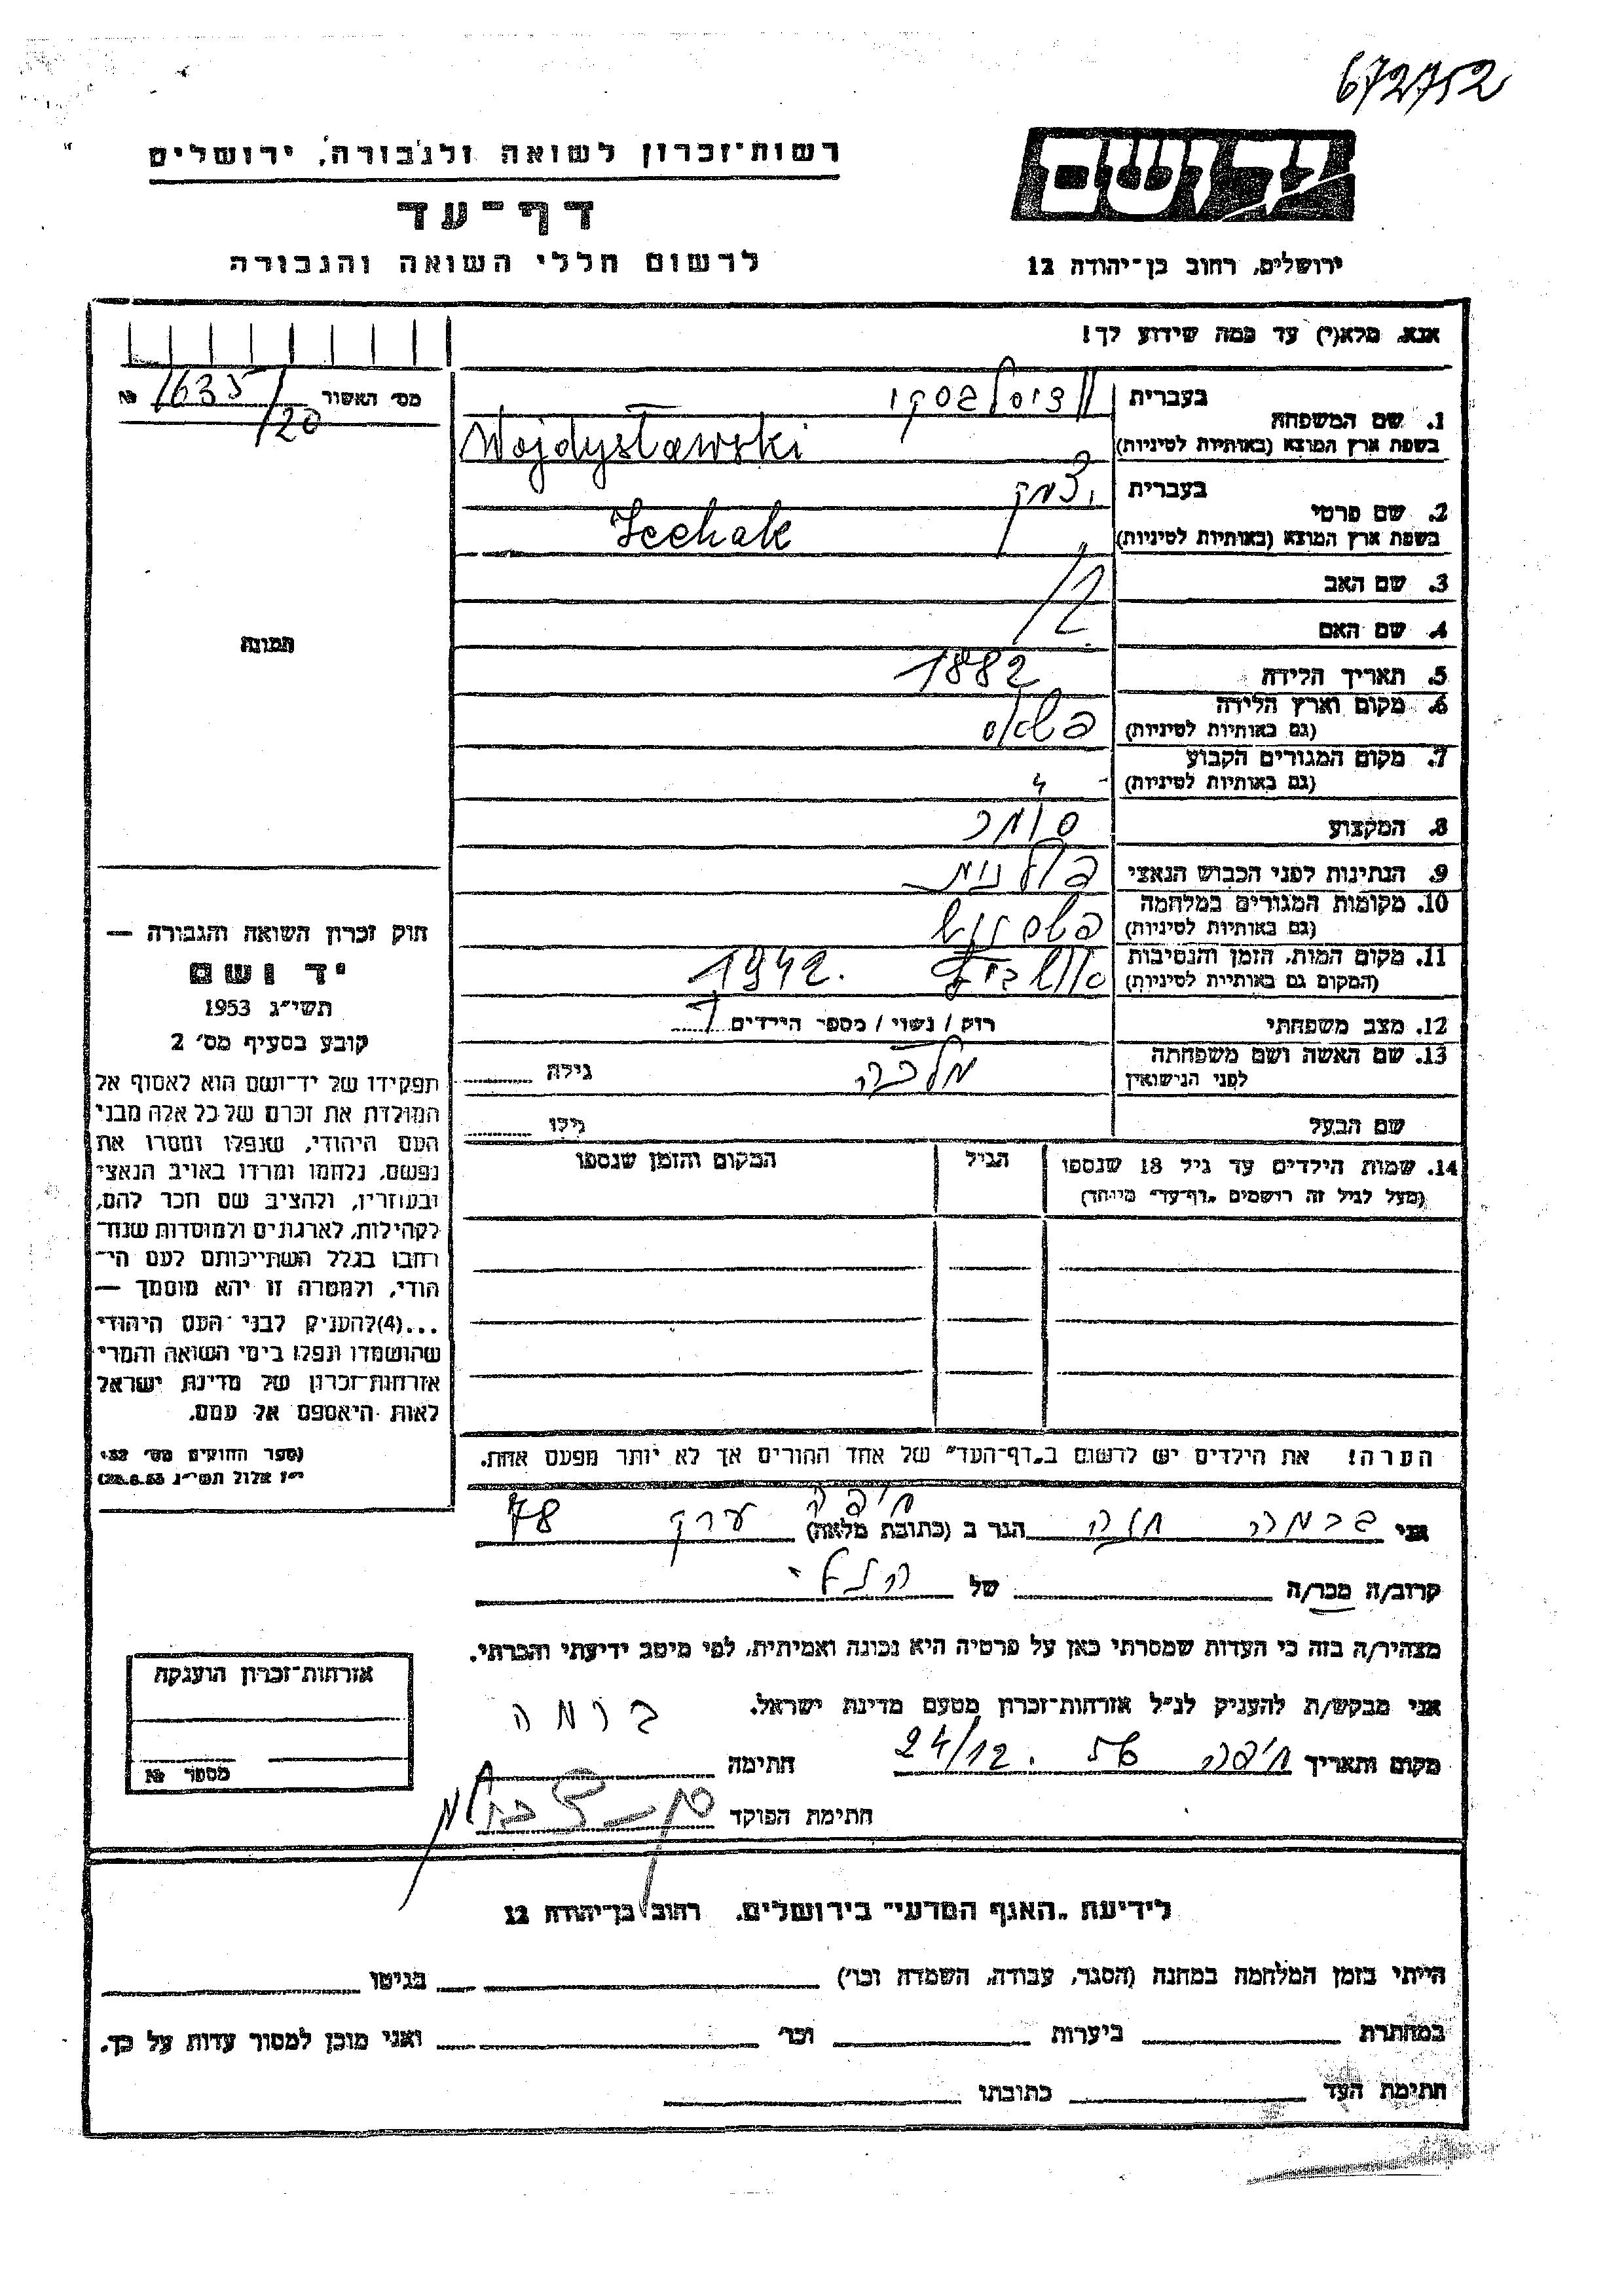 672752
יד ושם
רשות־זכרון לשואה ולגבורה, ירושלים
דף־עד
ירושלים, רחוב בן־יהודה 12
לרשום חללי השואה והגבורה
אנא, מלא(י) עד כמה שידוע לך!
מס׳ האשור 1635/120 №
1. שם המשפחה
בעברית
בשפת ארץ המוצא (באותיות לטיניות) Wojdysławski
2. שם פרטי
בעברית יצחק
בשפת ארץ המוצא (באותיות לטיניות) Icchak
3. שם האב
4. שם האם
5. תאריך הלידה 1882
6. מקום וארץ הלידה
(גם באותיות לטיניות)
7. מקום המגורים הקבוע
(גם באותיות לטיניות)
8. המקצוע סוחר
9. הנתינות לפני הכבוש הנאצי פולנית
10. מקומות המגורים במלחמה
(גם באותיות לטיניות)
11. מקום המות, הזמן והנסיבות 1942.
(המקום גם באותיות לטיניות)
12. מצב משפחתי רווק / נשוי / מספר הילדים
13. שם האשה ושם משפחתה מלכה גילה
לפני הנישואין
שם הבעל גילו
14. שמות הילדים עד גיל 18 שנספו הגיל המקום והזמן שנספו
(מעל לגיל זה רושמים „דף־עד״ מיוחד)
הערה! את הילדים יש לרשום ב„דף־העד״ של אחד ההורים אך לא יותר מפעם אחת.
תמונה
חוק זכרון השואה והגבורה —
יד ושם
תשי״ג 1953
קובע בסעיף מס׳ 2
תפקידו של יד־ושם הוא לאסוף אל
המולדת את זכרם של כל אלה מבני
העם היהודי, שנפלו ומסרו את
נפשם, נלחמו ומרדו באויב הנאצי
ובעוזריו, ולהציב שם וזכר להם,
לקהילות, לארגונים ולמוסדות שנח־
רבו בגלל השתייכותם לעם הי־
הודי, ולמטרה זו יהא מוסמך —
...(4)להעניק לבני העם היהודי
שהושמדו ונפלו בימי השואה והמרי
אזרחות־זכרון של מדינת ישראל
לאות היאספם אל עמם.
(ספר החוקים מס׳ 132,
י״ז אלול תשי״ג 28.8.53)
אני חנה הגר ב (כתובת מלאה) חיפה 78
קרוב/ה מכר/ה של הנ״ל
מצהיר/ה בזה כי העדות שמסרתי כאן על פרטיה היא נכונה ואמיתית, לפי מיטב ידיעתי והכרתי.
אני מבקש/ת להעניק לנ״ל אזרחות־זכרון מטעם מדינת ישראל.
מקום ותאריך חיפה 24/12 חתימה
חתימת הפוקד
אזרחות־זכרון הוענקה
מספר №
לידיעת „האגף המדעי״ בירושלים, רחוב בן־יהודה 12
הייתי בזמן המלחמה במחנה (הסגר, עבודה, השמדה וכו׳) בגיטו
במחתרת ביערות וכו׳ ואני מוכן למסור עדות על כך.
חתימת העד כתובתו